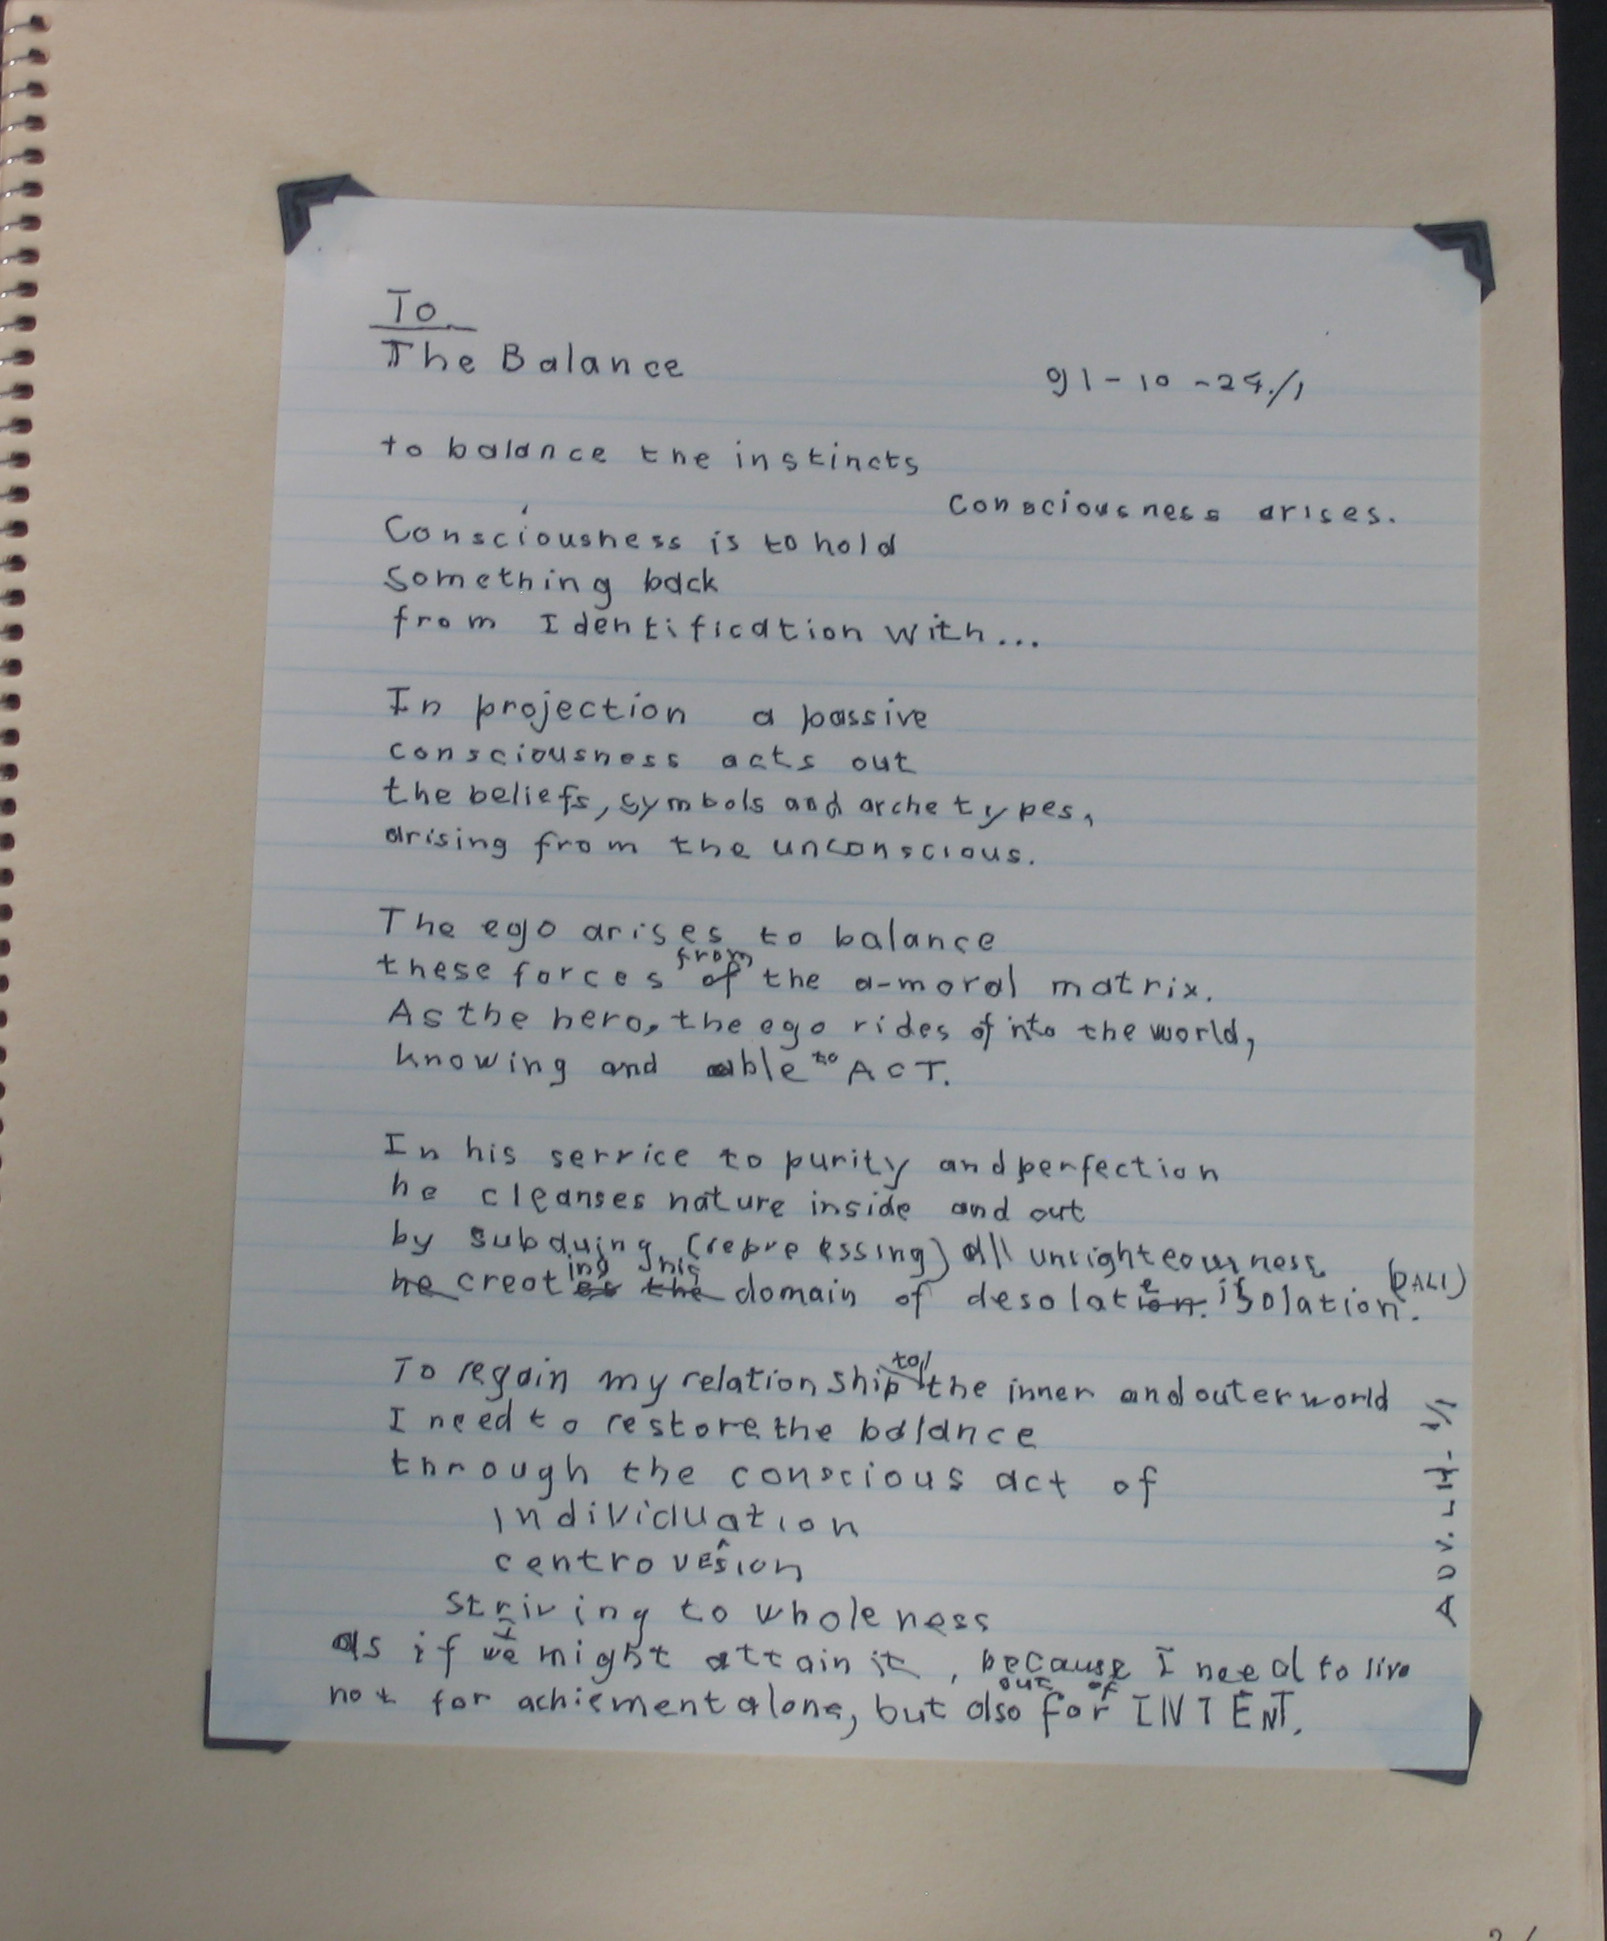 To
The Balance
91-10-24./1
to balance the instincts
Consciousness arises.
Consciousness is to hold
something back
from Identification with...
In projection a passive
consciousness acts out
the beliefs, symbols and archetypes,
arising from the unconscious.
The ego arises to balance
from
these forces of the a-moral matrix.
As the hero, the ego rides of into the world,
knowing and able to ACT.
In his service to purity and perfection
he cleanses nature inside and out
by subduing (repressing) all unrighteousness
ing his
he creates the domain of desolate isolation. (DALI)
to
To regain my relationship the inner and outer world
I need to restore the balance
through the conscious act of
individuation
centrovesion
striving to wholeness
I
as if we might attain it, because I need to live
out of
not for achiement alone, but also for INTENT.